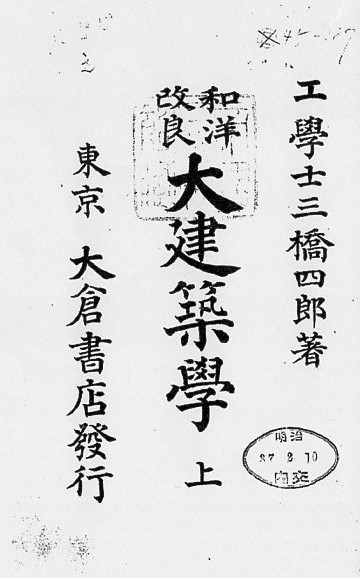 工學士三橋四郎著
和洋
改良
大建築學 上
東京 大倉書店發行
明治
37 2 10
内交